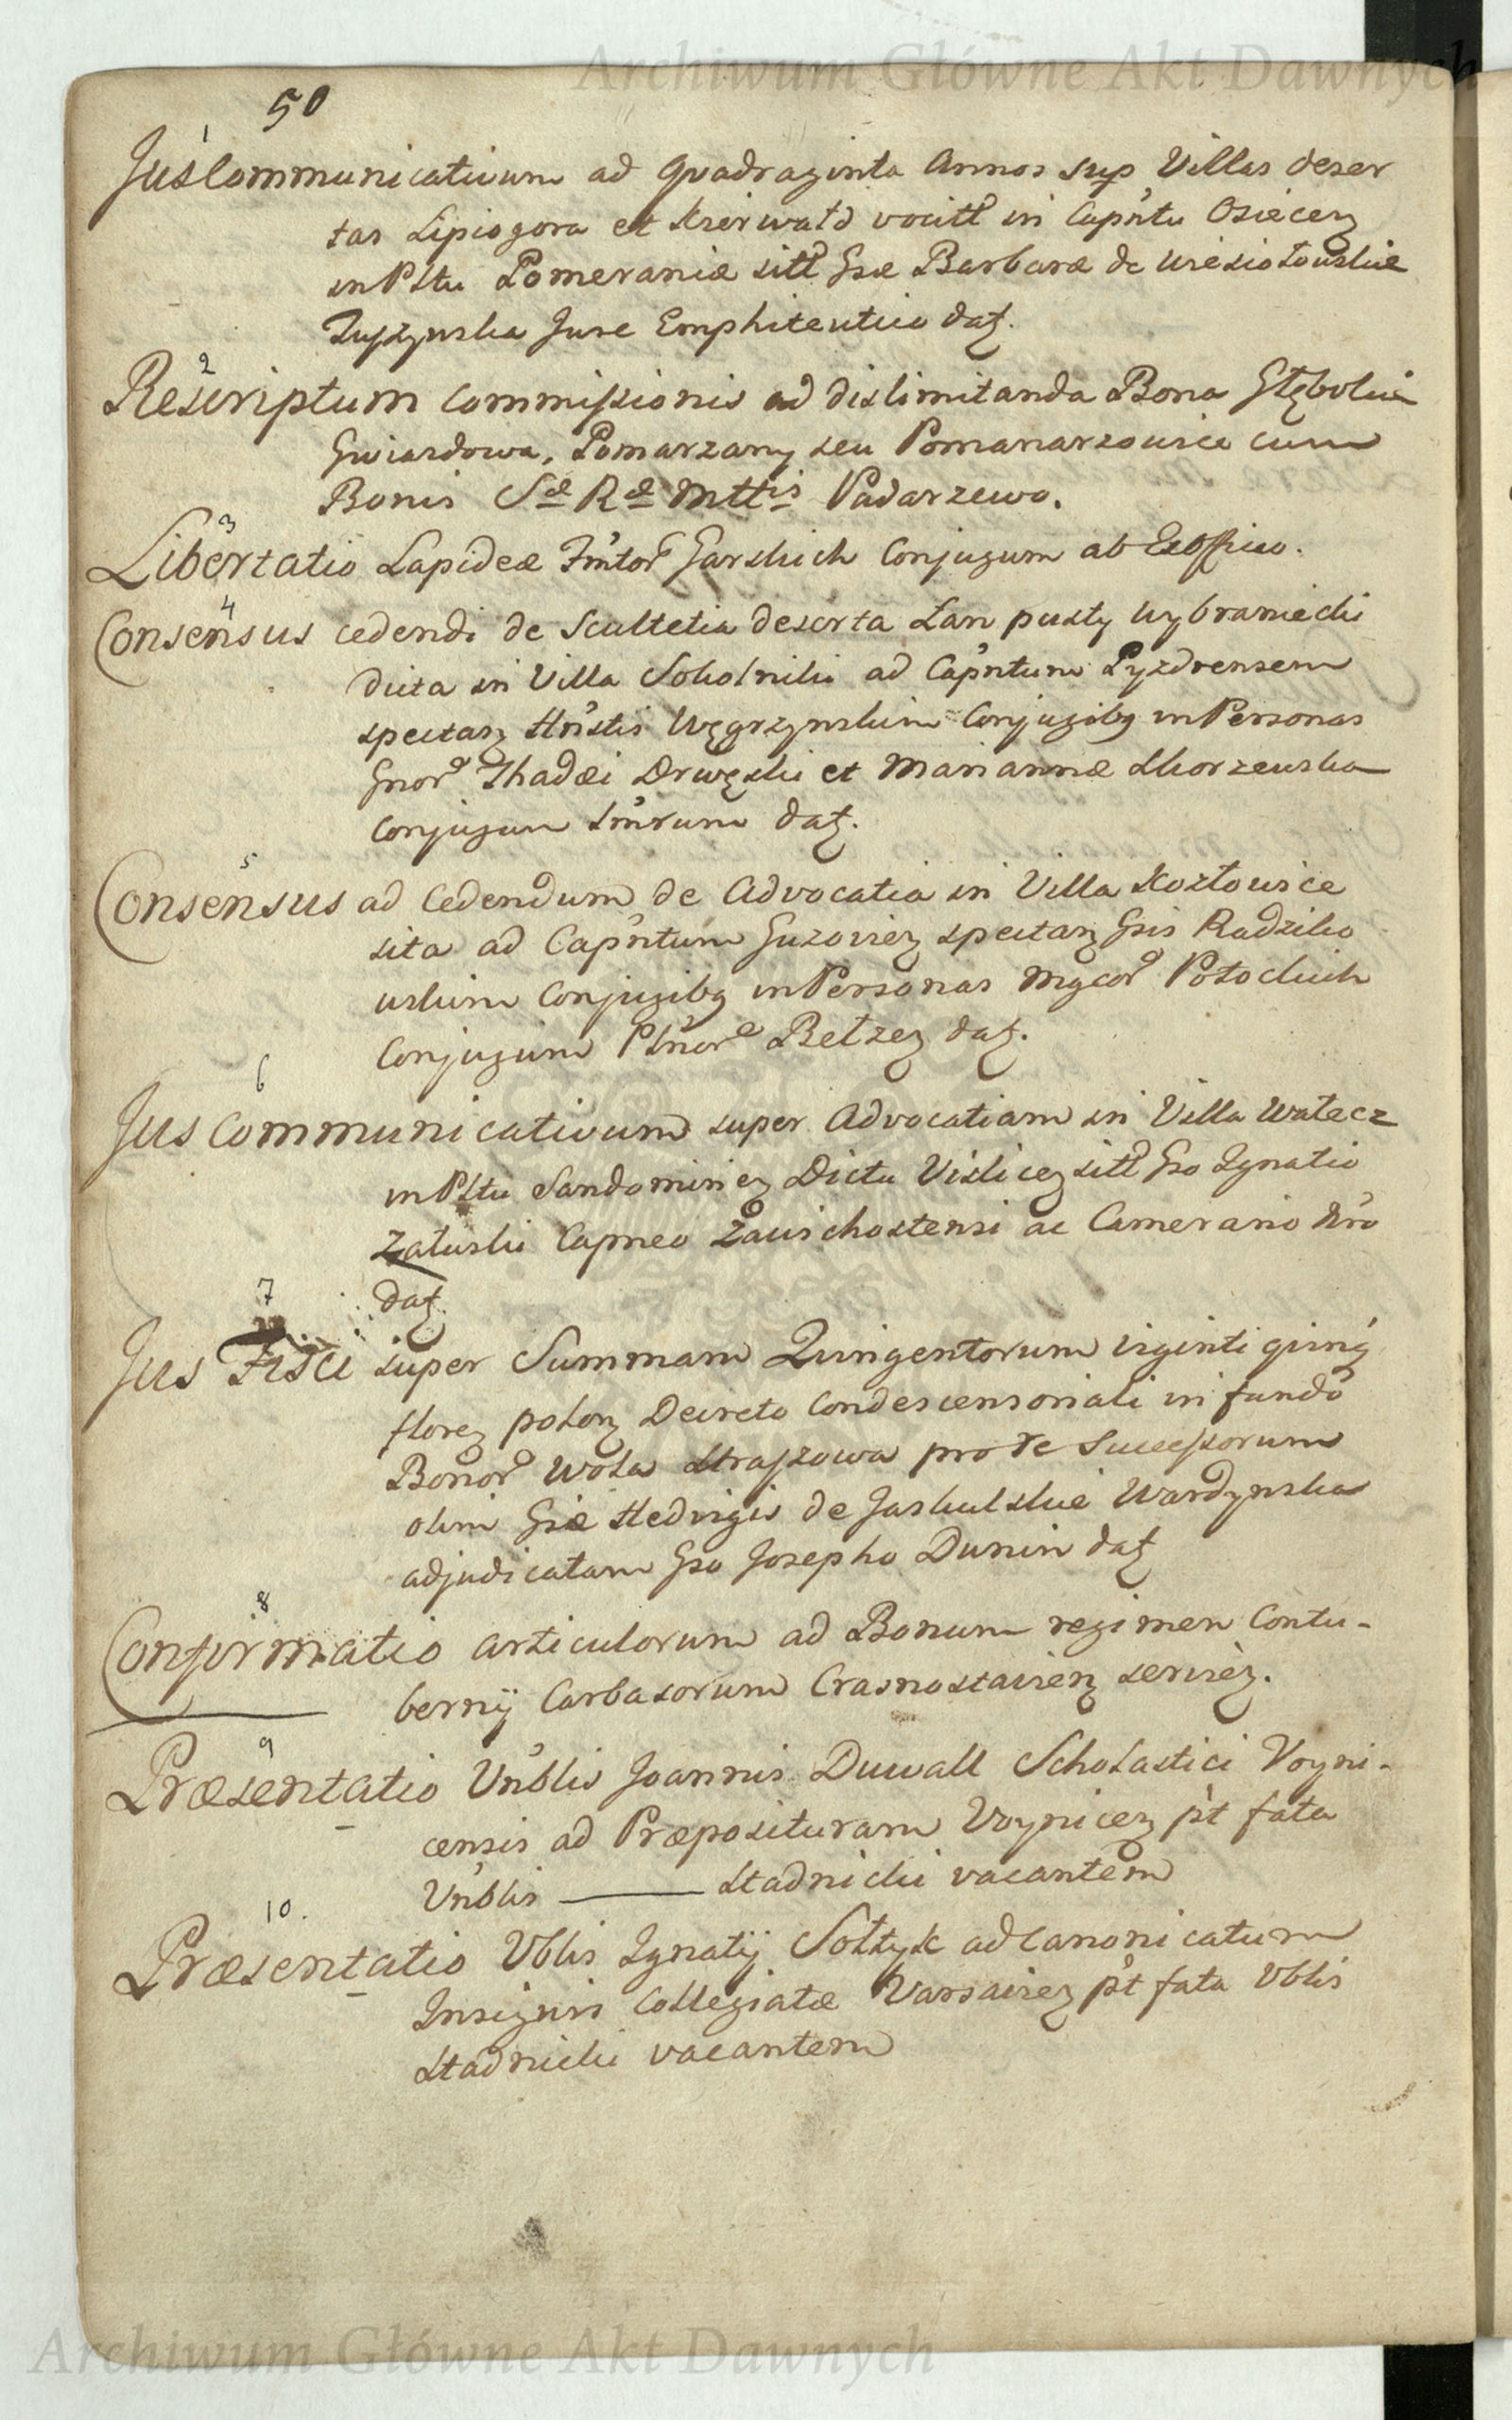 Archiwum Główne Akt Dawnych
50
1
Jus Communicativum ad quadraginta Annos sup Villas deser
tas Lipiogora et Kierwałd vocitt in Cap'ntu Osiecen
in Pltu Pomeraniæ sitt Gsæ Barbaræ de
Jure Emphiteutico dat.
2
Rescriptum Commissionis ad dislimitanda Bona Głębokie
Gwiazdowa, Pomarzany seu Pomanarzowice cum
Bonis Sæ Ræ Mttis Padarzewo.
3
Libertatio Lapideæ Garskich Conjugum ab
4
Consensus cedendi de Scultetia deserta Łan pusty wybraniecki
dicta in Villa Sokolniki ad Cap'ntum Pyzdrensem
spectan Hn'stis Węgrzynskim Conjugibg in Personas
Gnor Thadæi Drwęski et Mariannæ Skorzewska
Conjugum Sm'rum dat.
5
Consensus ad Cedendum de Advocatia in Villa Kozłowice
sita ad Cap'ntum Guzovien spectan Gsis Radziko
wskim Conjugibg in Personas Mgcor Potockich
Conjugum Bełzen dat.
6
Jus Communicativum super Advocatiam in Villa Wałecz
in Pltu Sandomirien Dictu Vislicen sitt Gso Ignatio
Załuski Capneo Zawichostensi ac Camerario
dat.
7
Jus Fisci super Summam Quingentorum viginti quinq
floren polon Decreto Condescensoriali in fundo
Bonor Wola Straszowa pro re Successorum
olim Gsæ Hedvigis de Jaskulskie Wardynska
adjudicatam Gso Josepho Dunin dat
8
Confirmatio articulorum ad Bonum regimen Contu-
bernij Carbasorum Crasnostavien servien.
9
Præsentatio Vn'blis Joannis Duwall Scholastici Voyni-
censis ad Præposituram Voynicen p't fata
Vn'blis ——— Stadnicki vacantem
10.
Præsentatio Vblis Ignatij Sołtyk ad Canonicatum
Insignis Collegiatæ Varsavien p't fata Vblis
Stadnicki vacantem
Archiwum Główne Akt Dawnych